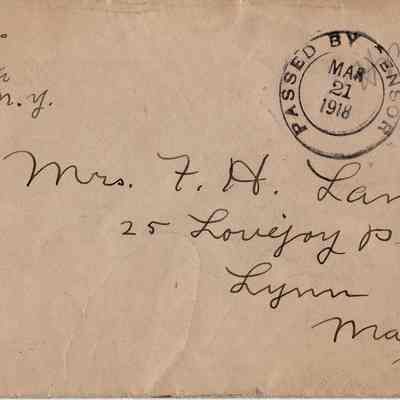 N.Y.
PASSED BY CENSOR
MAR
21
1918
Mrs. F. H. Lan
25 Lovejoy P
Lynn
Ma